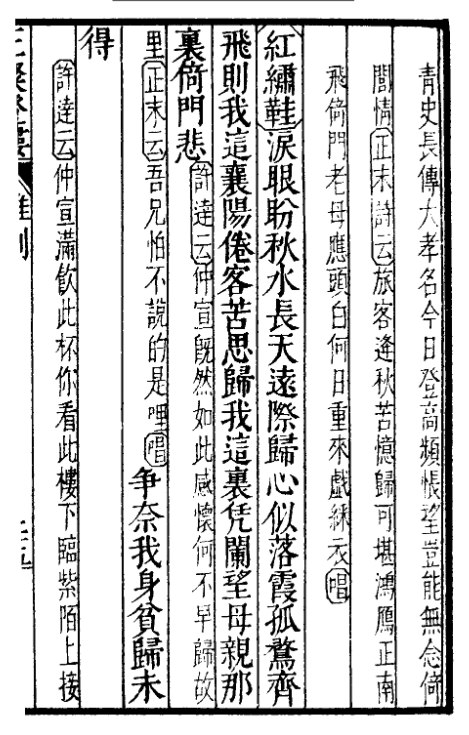 青史長傳大孝名今日登高頻悵望豈能無念倚
閭情正末詩云旅客逢秋苦憶歸可堪鴻鴈正南
飛倚門老母應頭白何日重來戲綵衣唱
紅繡鞋淚眼盼秋水長天遠際歸心似落霞孤鶩齊
飛則我這襄陽倦客苦思歸我這裏凭闌望母親那
裏倚門悲許達云仲宣旣然如此感懷何不早歸故
里正末云吾兄怕不說的是哩唱爭奈我身貧歸未
得
許達云仲宣滿飲此杯你看此樓下臨紫陌上接